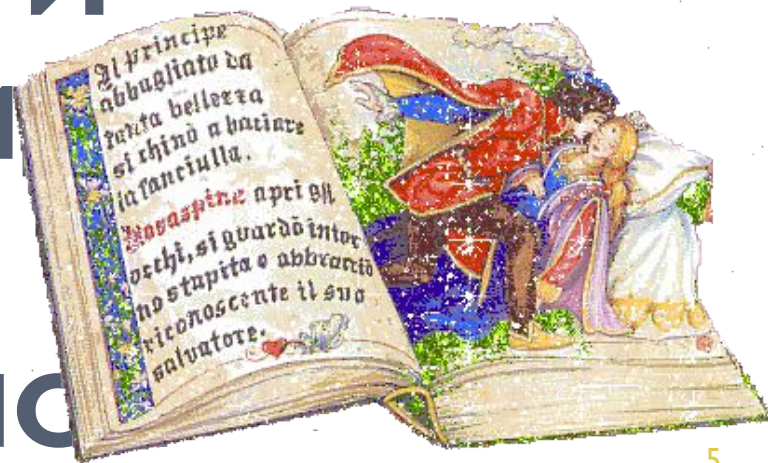 Il Principe
abbagliato da
tanta bellezza
si chinò a baciare
la fanciulla.
Rosaspina aprì gli
occhi, si guardò intor
no stupita e abbracciò
riconoscente il suo
salvatore.
5